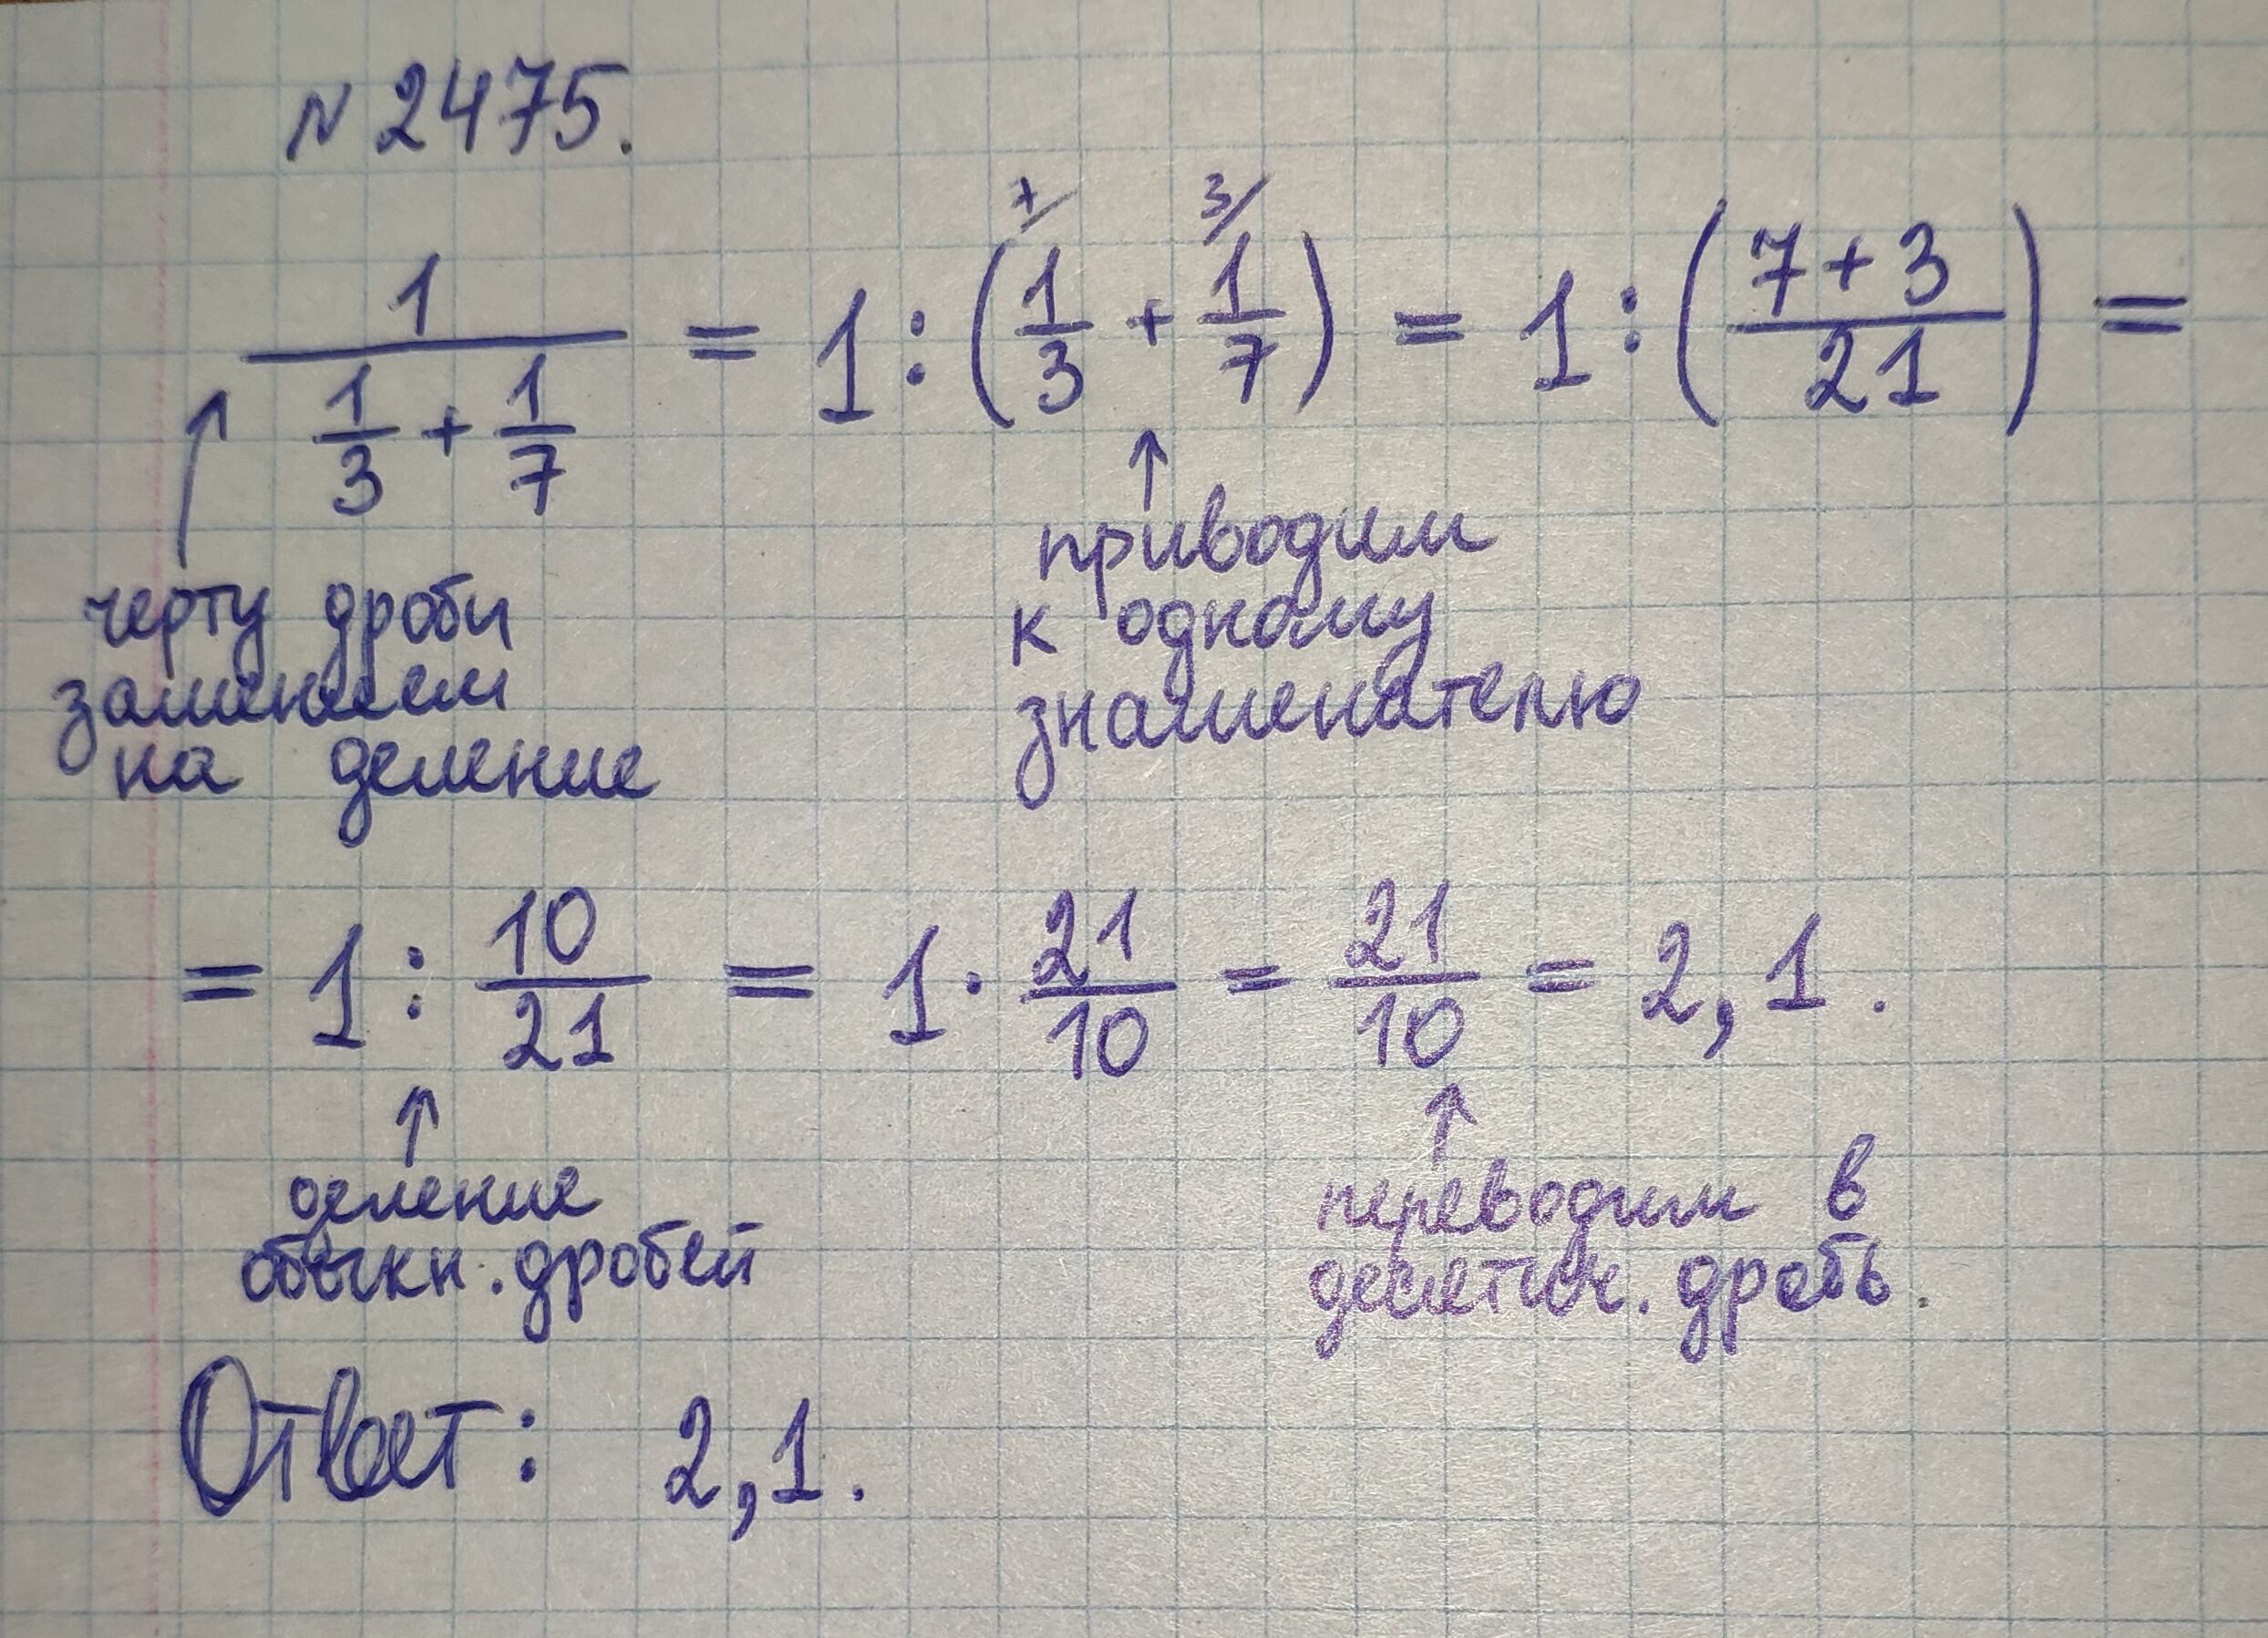 N 2475.
1/(1/3 + 1/7) = 1 : (⁷⁄1/3 + ³⁄1/7) = 1 : ((7+3)/21) =
черту дроби
заменяем
на деление
приводим
к одному
знаменателю
= 1 : 10/21 = 1 · 21/10 = 21/10 = 2,1.
деление
обыкн. дробей
переводим в
десятич. дробь.
Ответ: 2,1.